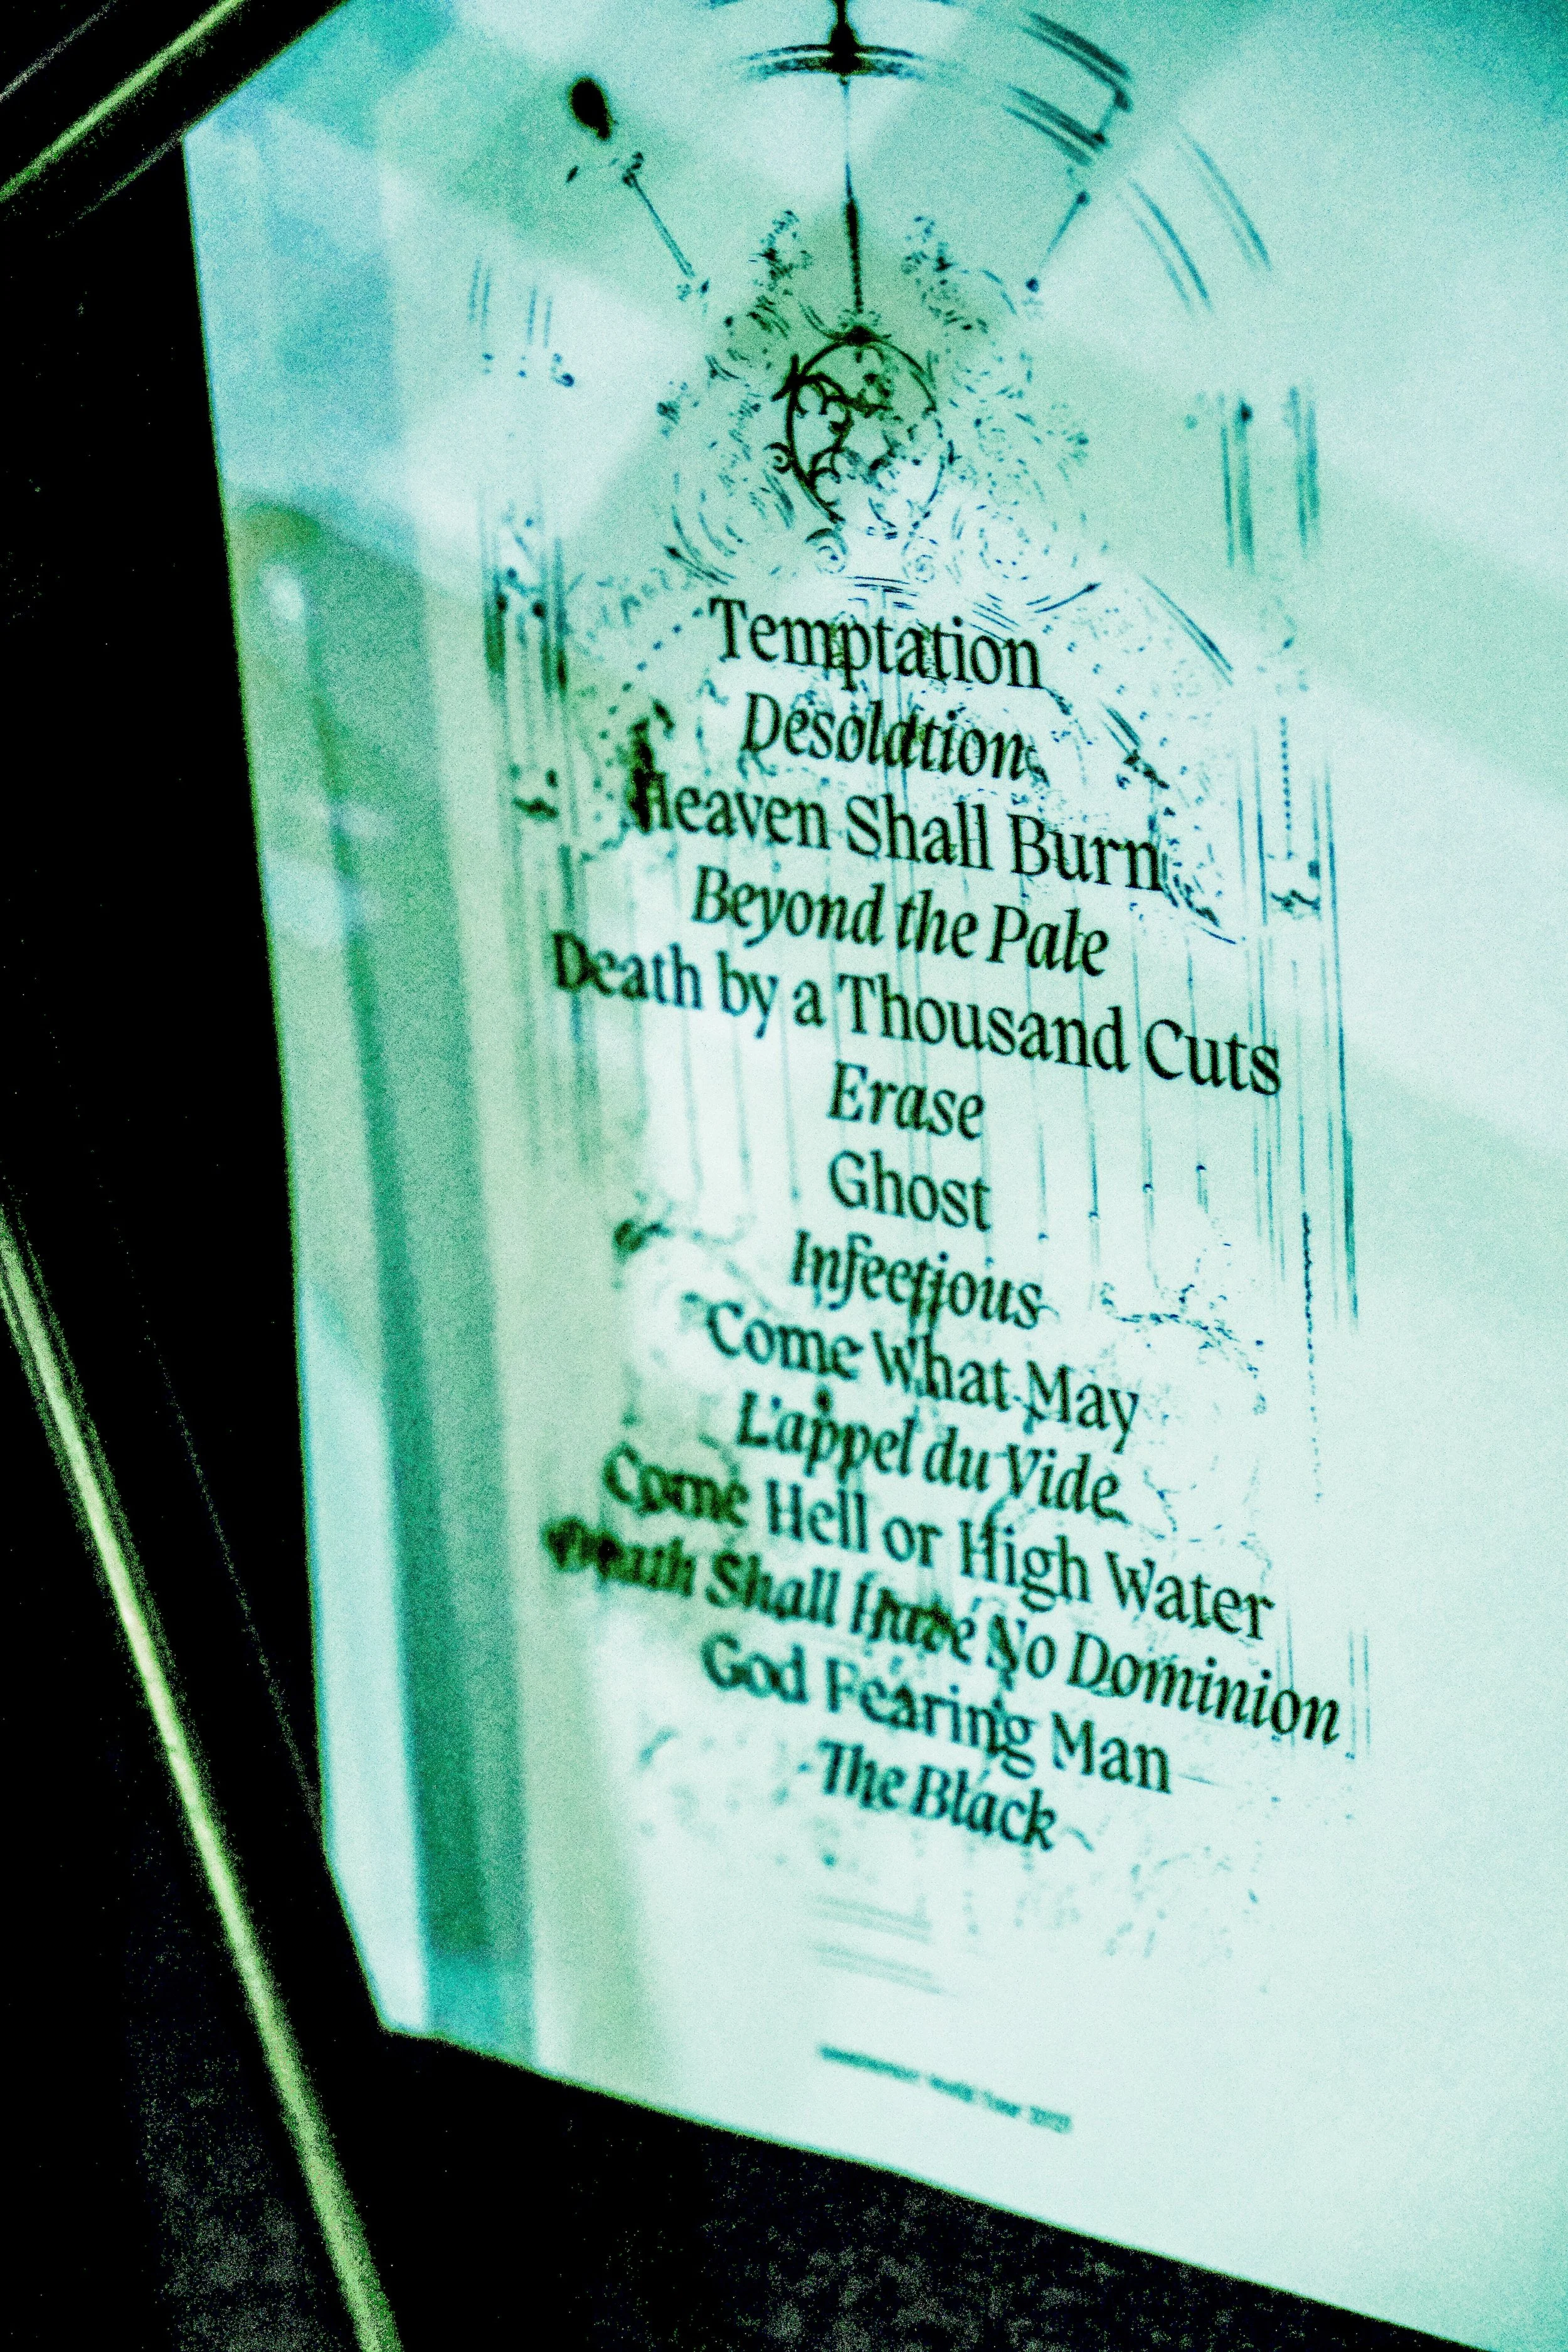 Temptation
Desolation
Heaven Shall Burn
Beyond the Pale
Death by a Thousand Cuts
Erase
Ghost
Infectious
Come What May
L'appel du Vide
Come Hell or High Water
Death Shall Have No Dominion
God Fearing Man
The Black